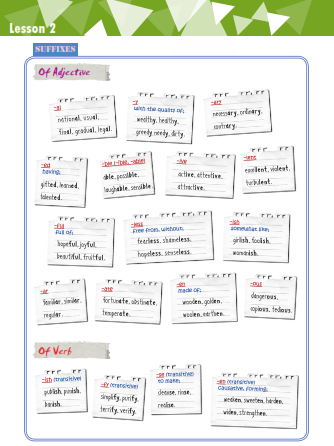 Lesson 2
SUFFIXES
Of Adjective
-al
national, usual,
final, gradual, legal.
-y
with the quality of;
wealthy, healthy,
greedy needy, dirty.
-ary
necessary, ordinary,
contrary.
-ed
having;
gifted, learned,
talented.
-ble (-ible, -able)
able, possible,
laughable, sensible.
-ive
active, attentive,
attractive.
-ent
excellent, violent,
turbulent.
-ful
full of;
hopeful, joyful,
beautiful, fruitful.
-less
free from, without;
fearless, shameless,
hopeless, senseless.
-ish
somewhat like;
girlish, foolish,
womanish.
-ar
familiar, similar,
regular.
-ate
fortunate, obstinate,
temperate.
-en
made of;
wooden, golden,
woolen, earthen.
-ous
dangerous,
copious, tedious.
Of Verb
-ish (transitive)
publish, punish,
banish.
-fy (transitive)
simplify, purify,
terrify, verify.
-se (transitive)
to make;
cleanse, rinse,
realise.
-en (transitive)
causative, forming;
weaken, sweeten, harden,
widen, strengthen.